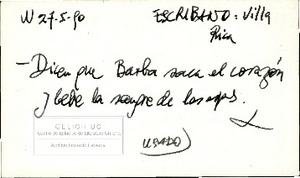 W 27-5-90 ESCRIBANO: Villa
Rica
- Dicen que Barba saca el corazón
y bebe la sangre de los
CELICH UC
USADO